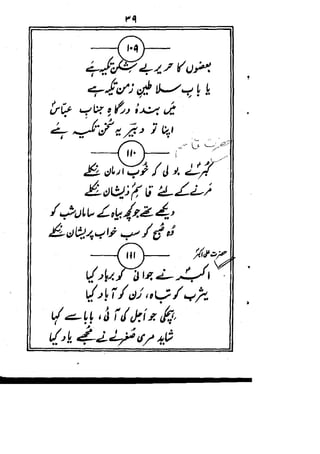 ۳۹
۱۰۹
بعضوں کا حریرِ بے شکن تکیہ ہے
یا بابِ سلاطینِ زمن تکیہ ہے
میں بندہ درگاہِ جنابِ عباسؑ
اپنا تو دبیرؔ یہ سخن تکیہ ہے
حضرت قاسم
۱۱۰
کبرٰے بولی کہ خوب ارمان نکلے
مرنے کے لئے قاسمِ ذیشان نکلے
دیکھے تھے جو کچھ بیاہ کے ساماں شب کو
وہ صبح کو سب خواب پریشان نکلے
حضرت علی اکبرؑ
۱۱۱
اکبرؑ نے جوانی کو برباد کیا
یثرب کو تباہ، رَن کو آباد کیا
ہچکی جو اَجل کی آئی، بابا سے کہا
شاید مری صغرٰے نے مجھے یاد کیا